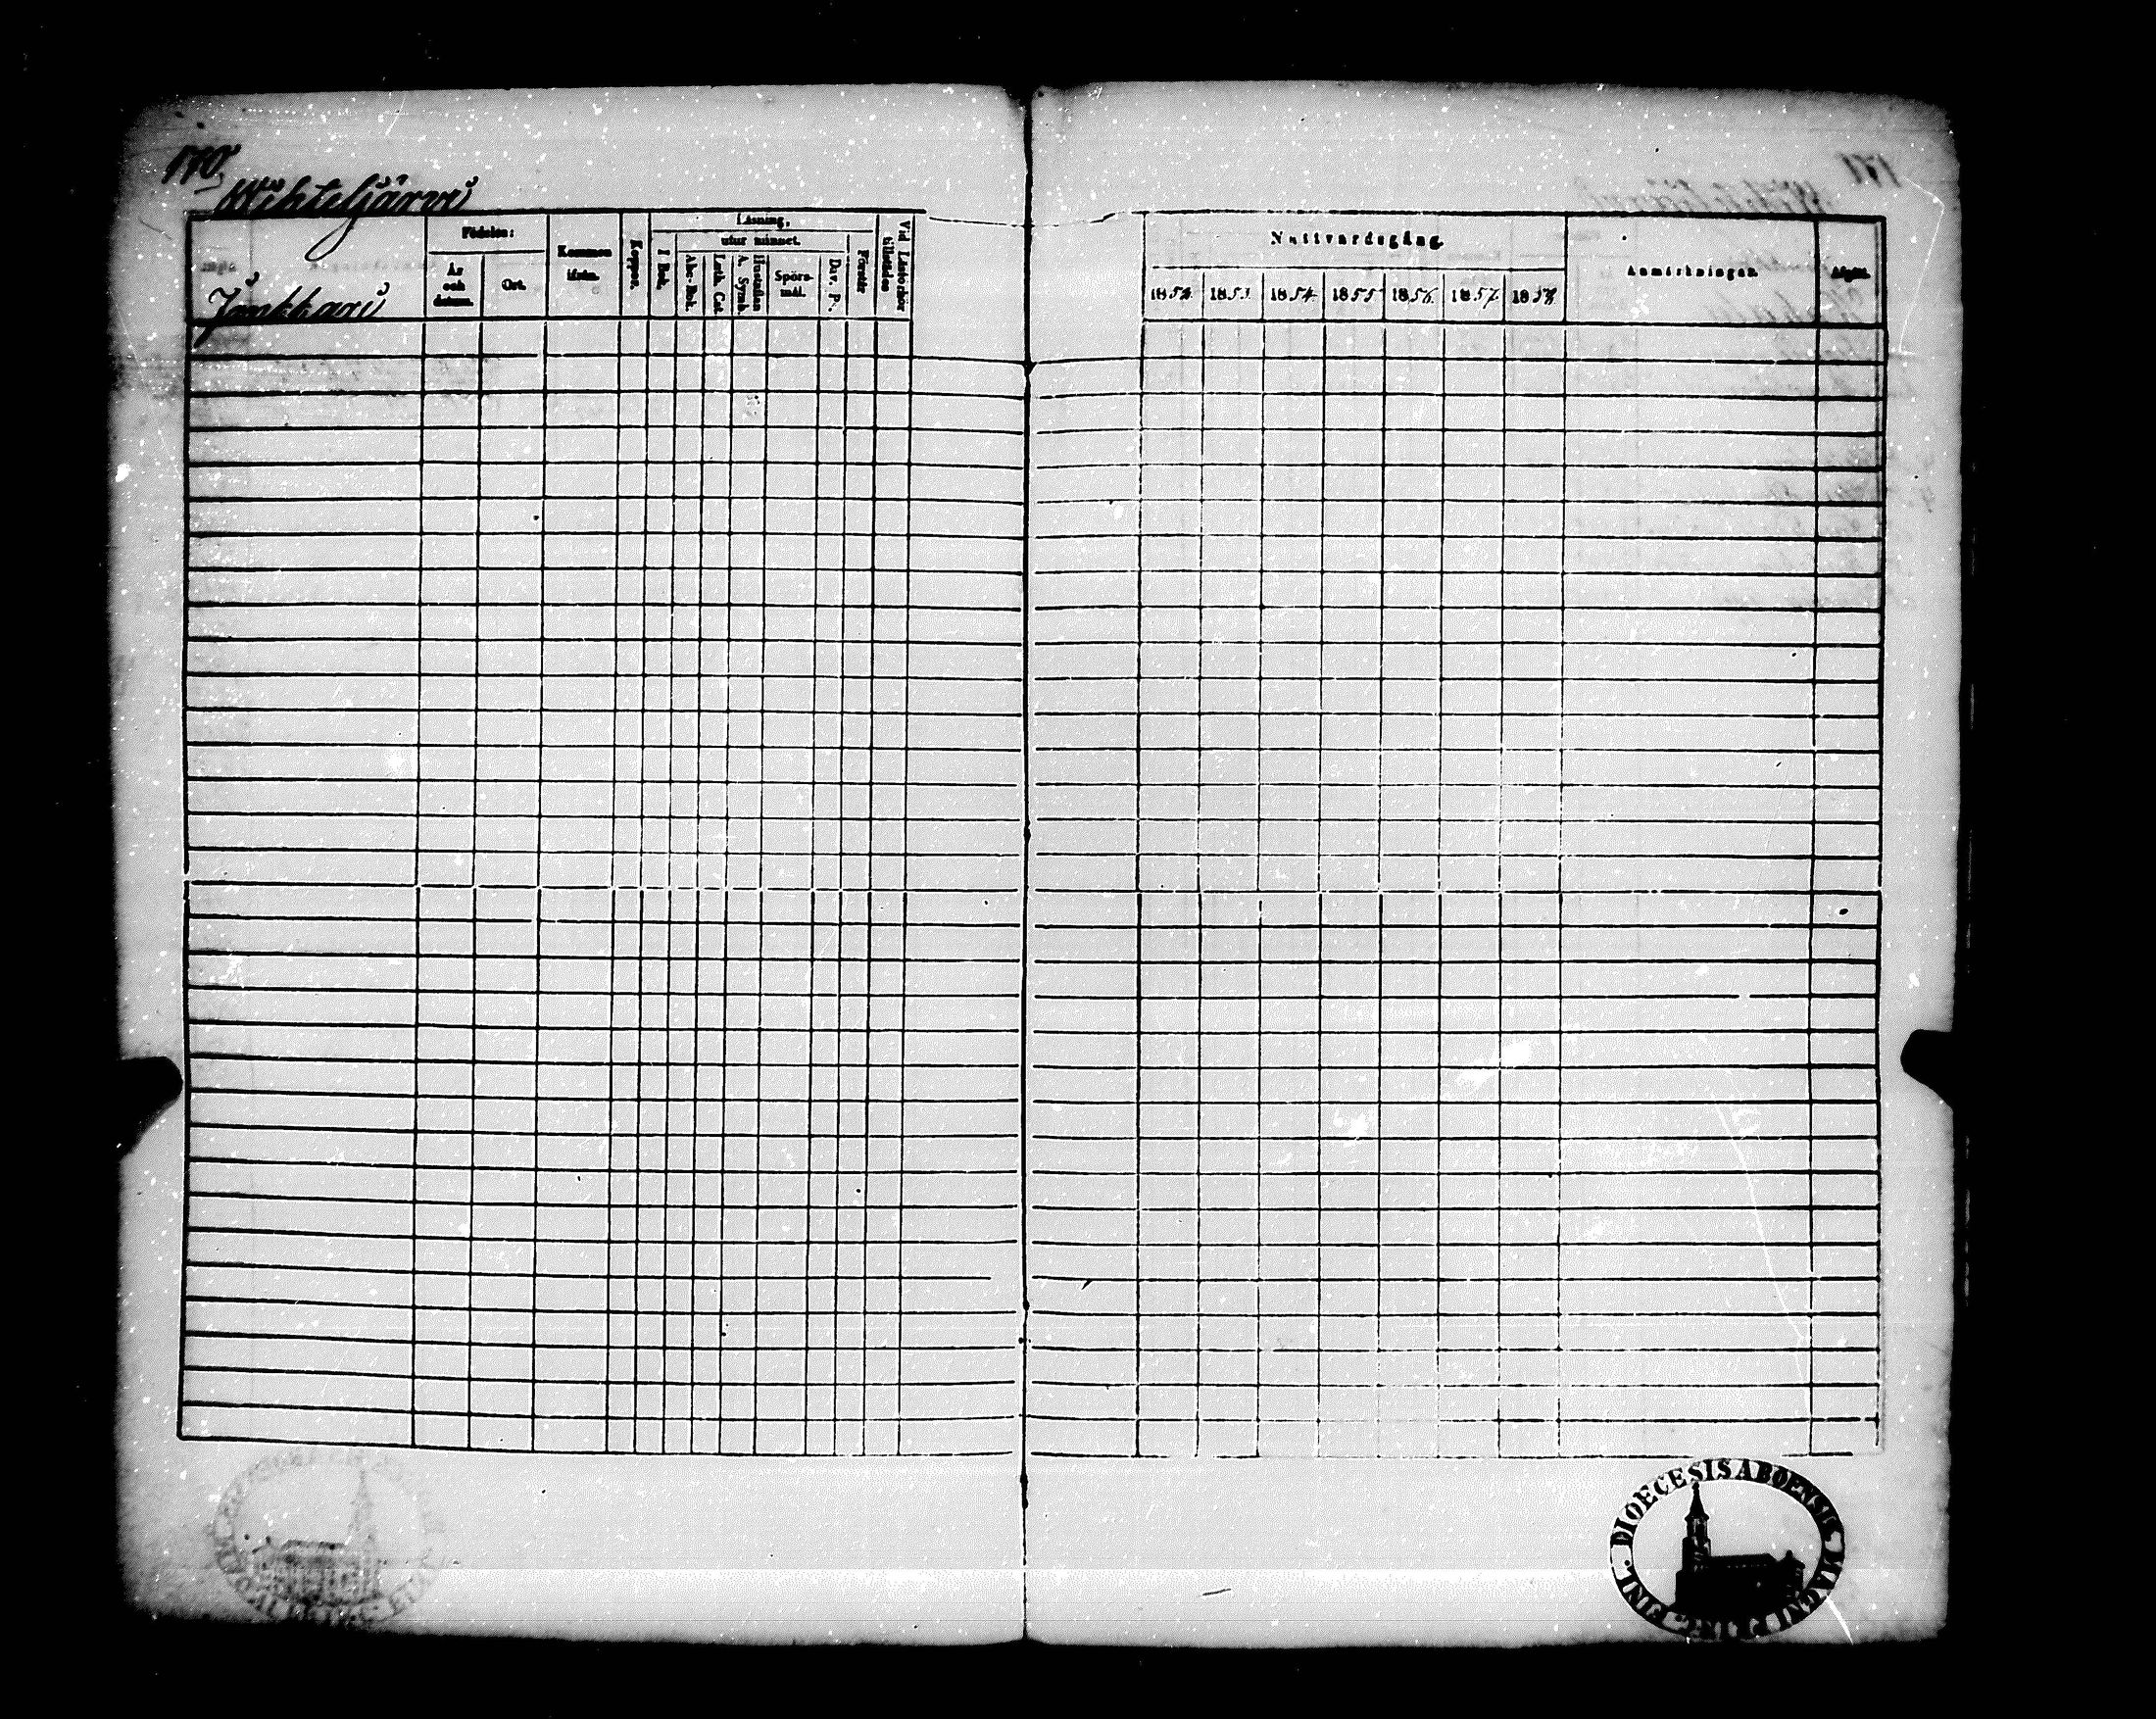 170.
Wihteljärwi
Jonkkari
Födelse:
År och datum.
Ort.
Kommen ifrån.
Koppor.
Läsning,
utur minnet.
I Bok.
Abc-Bok.
Luth. Cat.
Hustaflan A. Symb.
Spörsmål.
Dav. P.
Förstår
Vid Läsförhör tillstädes
Nattvardsgång.
1852. 1853. 1854. 1855 1856. 1857. 1858
Anmärkningar.
Afgått.
DIOECESIS ABOENSIS MAGNI PRINC. FINL.